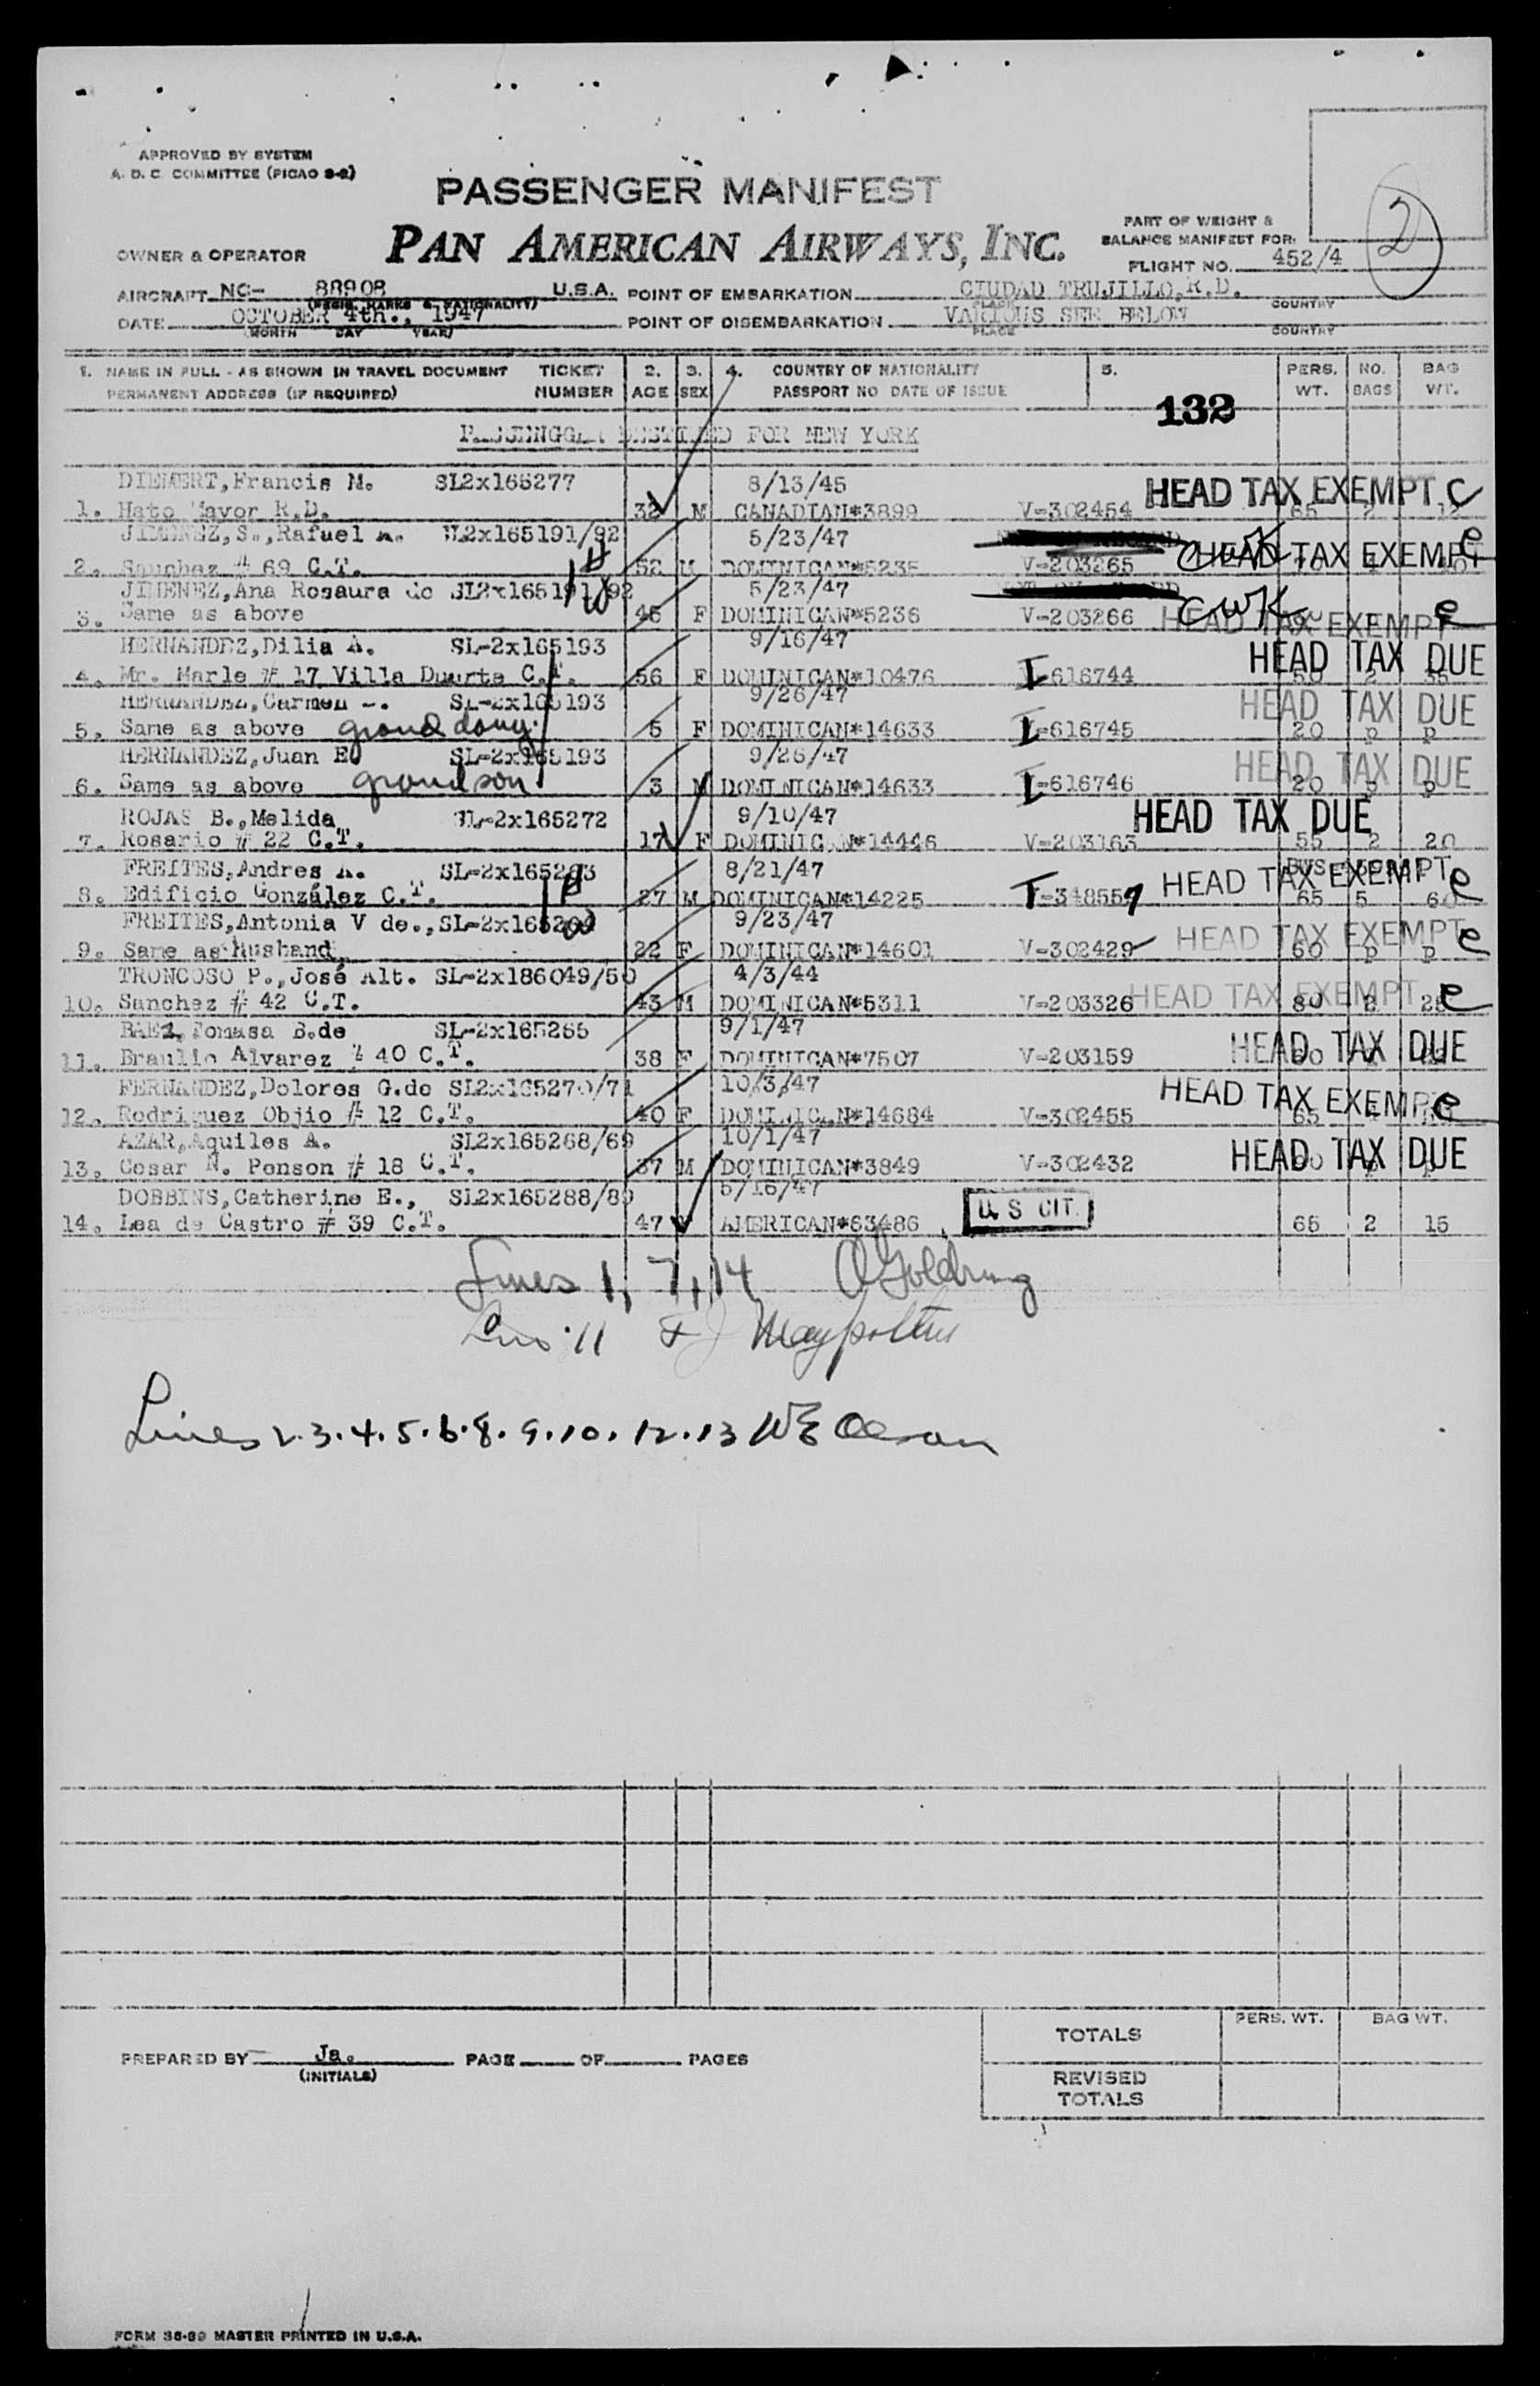 APPROVED BY SYSTEM
A. D. C. COMMITTEE (PICAO S-2)
PASSENGER MANIFEST
PAN AMERICAN AIRWAYS, INC.
2
PART OF WEIGHT &
BALANCE MANIFEST FOR:
FLIGHT NO. 452/4
OWNER & OPERATOR
AIRCRAFT NC- 88908 U.S.A. POINT OF EMBARKATION CIUDAD TRUJILLO, R.D.
(REGIS. MARKS & NATIONALITY) PLACE COUNTRY
DATE OCTOBER 4th., 1947 POINT OF DISEMBARKATION VARIOUS SEE BELOW
(MONTH DAY YEAR) PLACE COUNTRY
1. NAME IN FULL - AS SHOWN IN TRAVEL DOCUMENT TICKET 2. 3. 4. COUNTRY OF NATIONALITY 5. PERS. NO. BAG
PERMANENT ADDRESS (IF REQUIRED) NUMBER AGE SEX PASSPORT NO DATE OF ISSUE WT. BAGS WT.
132
DESTINED FOR NEW YORK
DIEMERT, Francis M. SL2x165277 8/13/45 HEAD TAX EXEMPT C
1. Hato Mayor R.D. 32 M CANADIAN*3899 V-302454 65 2
JIMENEZ, S., Rafael A. SL2x165191/92 5/23/47
2. Sanchez # 69 C.T. H 52 M DOMINICAN*5235 V-203265 HEAD TAX EXEMPT e
JIMENEZ, Ana Rosaura de SL2x165191/92 5/23/47
3. Same as above W 45 F DOMINICAN*5236 V-203266 CWK HEAD TAX EXEMPT e
HERNANDEZ, Dilia A. SL-2x165193 9/16/47
4. Mr. Marle # 17 Villa Duarte C.T. 56 F DOMINICAN*10476 I-616744 HEAD TAX DUE
HERNANDEZ, Carmen SL-2x165193 9/26/47
5. Same as above grand daug. 5 F DOMINICAN*14633 I-616745 HEAD TAX DUE 20 p p
HERNANDEZ, Juan E SL-2x165193 9/26/47
6. Same as above grandson 3 M DOMINICAN*14633 I-616746 HEAD TAX DUE 20 p p
ROJAS B., Melida SL-2x165272 9/10/47 HEAD TAX DUE
7. Rosario # 22 C.T. 17 F DOMINICAN*14446 V-203163 55 2 20
FREITES, Andres A. SL-2x165203 8/21/47 HEAD TAX EXEMPT e
8. Edificio González C.T. H 27 M DOMINICAN*14225 T-348557 65 5 60
FREITES, Antonia V de., SL-2x165203 9/23/47
9. Same as Husband W 22 F DOMINICAN*14601 V-302429 HEAD TAX EXEMPT e 60 p p
TRONCOSO P., José Alt. SL-2x186049/50 4/3/44
10. Sanchez # 42 C.T. 43 M DOMINICAN*5311 V-203326 HEAD TAX EXEMPT e 80 2 25
BAEZ, Tomasa B. de SL-2x165265 9/1/47
11. Braulio Alvarez # 40 C.T. 38 F DOMINICAN*7507 V-203159 HEAD TAX DUE
FERNANDEZ, Dolores G. de SL2x165270/71 10/3/47
12. Rodriguez Objio # 12 C.T. 40 F DOMINICAN*14684 V-302455 HEAD TAX EXEMPT e 65
AZAR, Aquiles A. SL2x165268/69 10/1/47
13. Cesar N. Penson # 18 C.T. 37 M DOMINICAN*3849 V-302432 HEAD TAX DUE
DOBBINS, Catherine E., SL2x165288/89 5/16/47
14. Lea de Castro # 39 C.T. 47 F AMERICAN*63486 U S CIT. 65 2 15
Lines 1, 7, 14 Goldrung
11
Lines 2.3.4.5.6.8.9.10.12.13 WE Olson
TOTALS PERS. WT. BAG WT.
PREPARED BY Ja. PAGE OF PAGES
(INITIALS)
REVISED
TOTALS
FORM 36-99 MASTER PRINTED IN U.S.A.